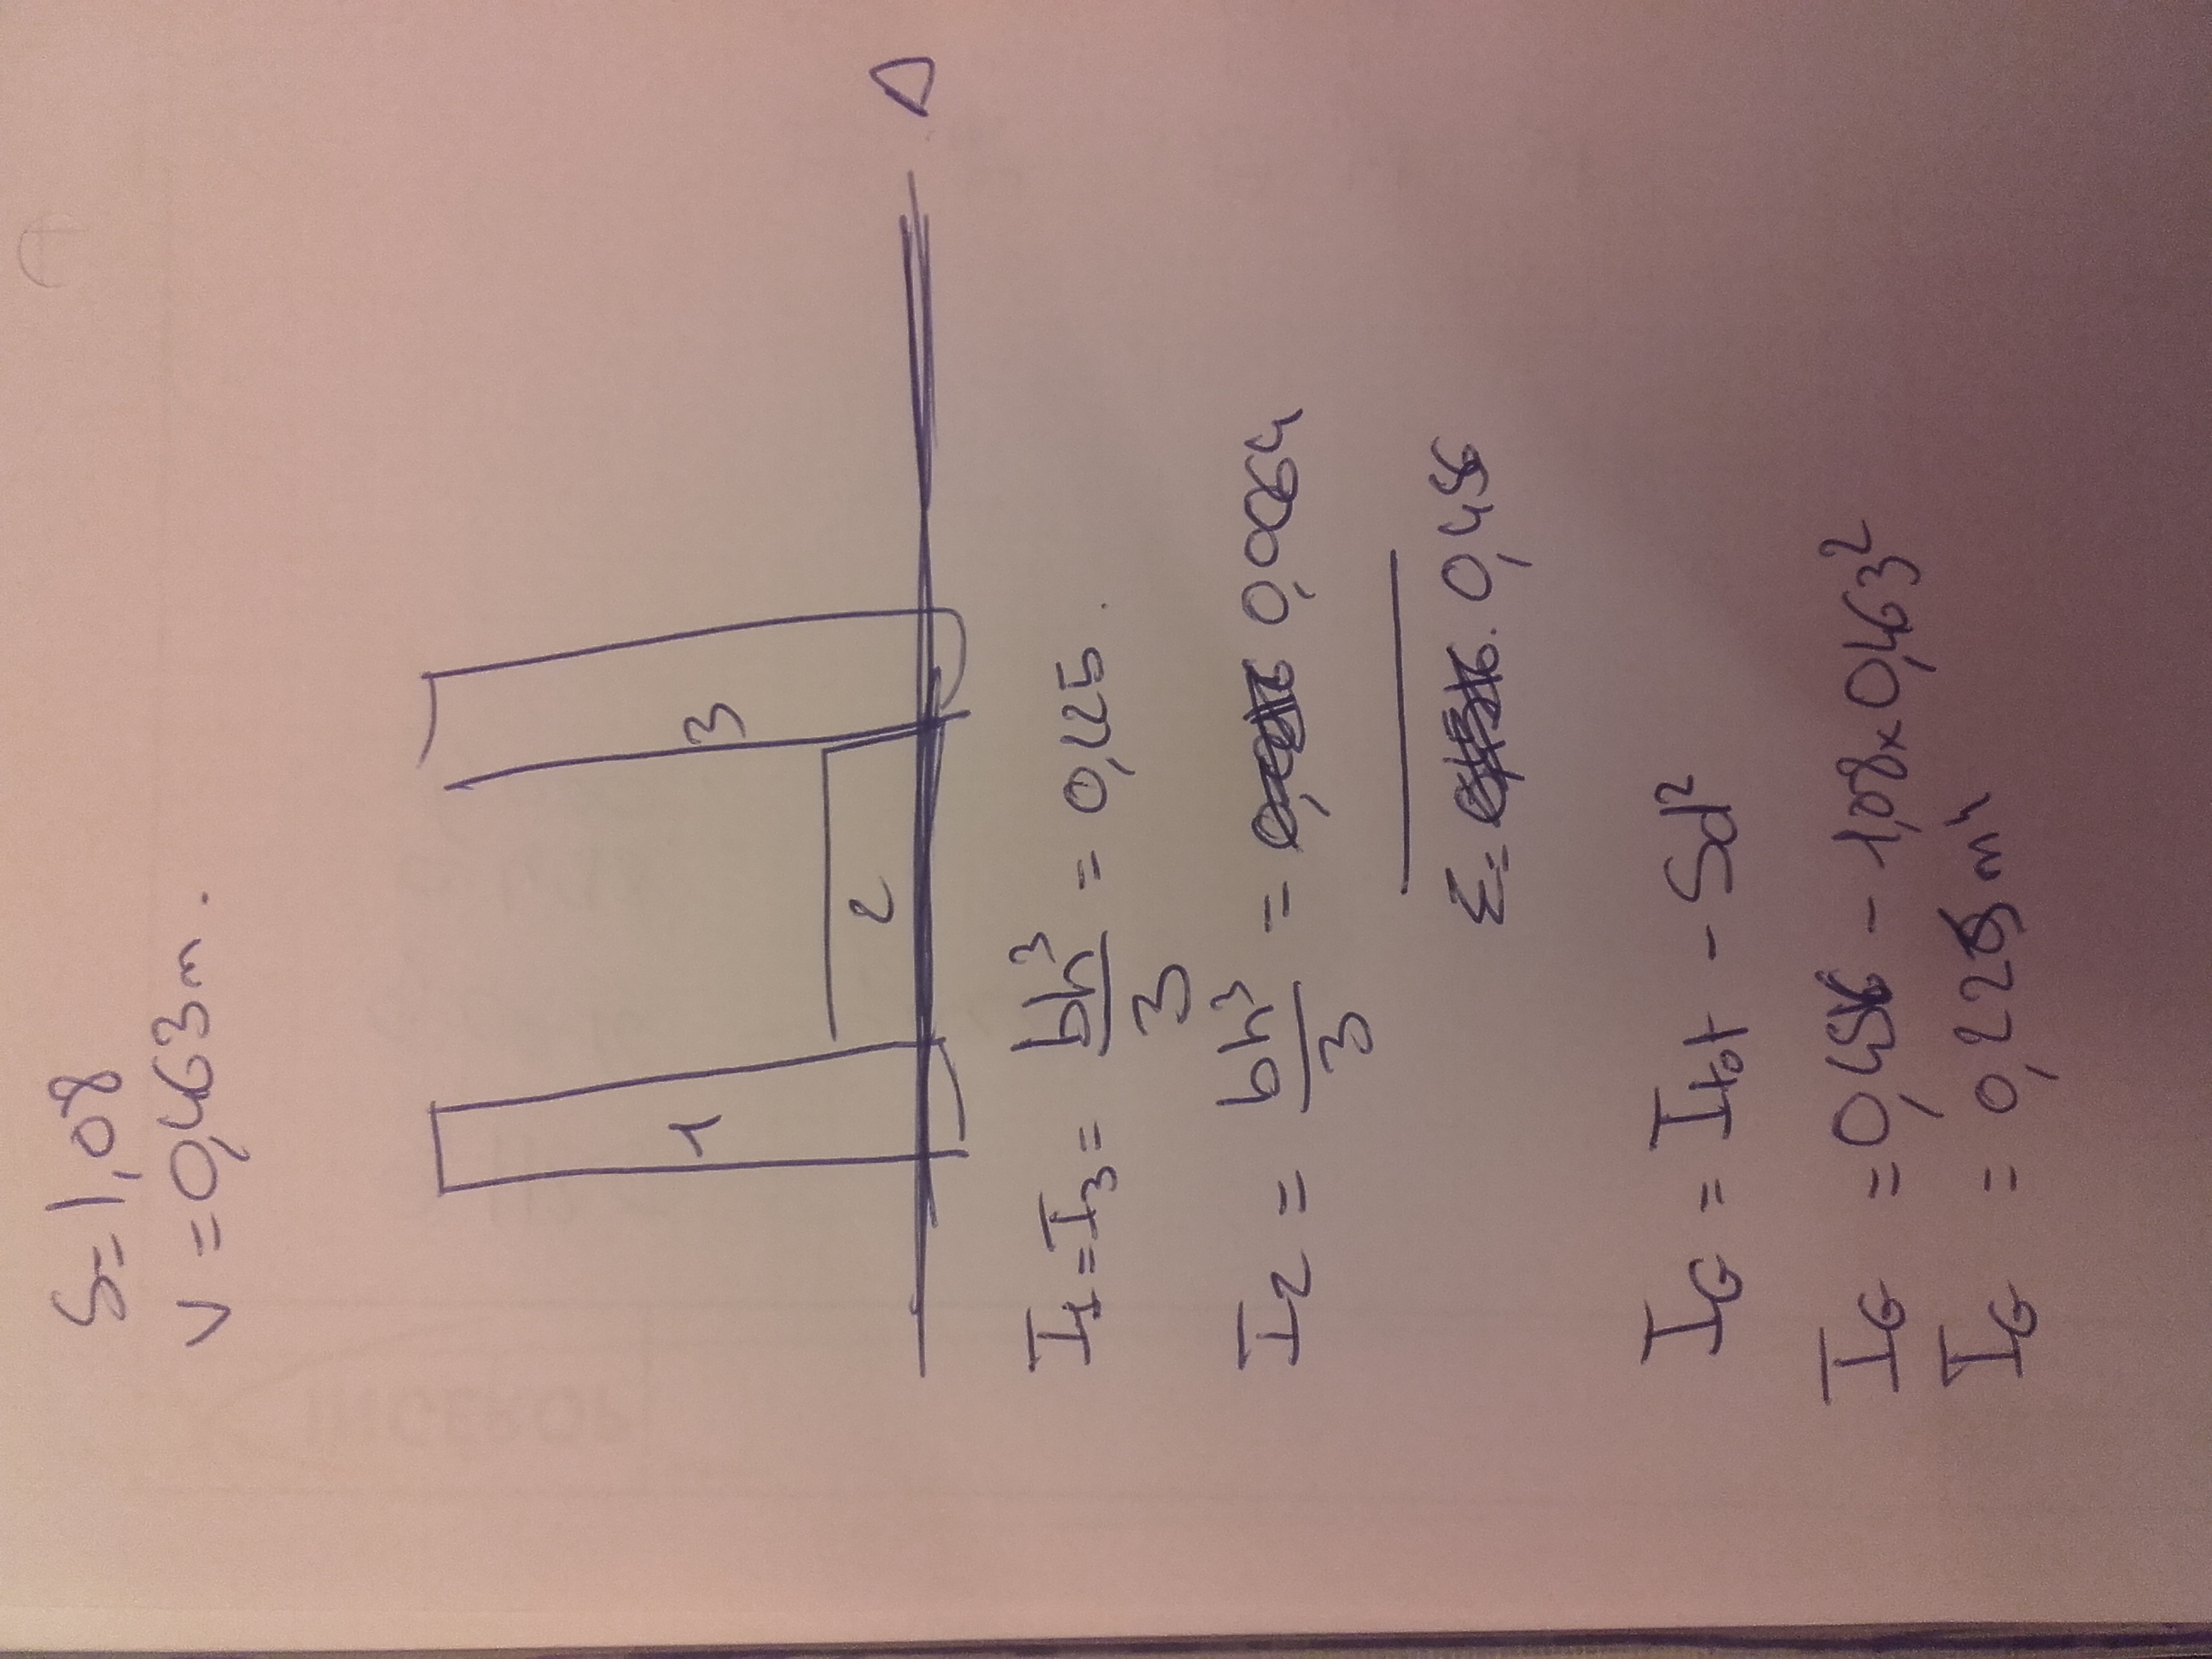 S=1,08
V=0,463m.
Δ
1
2
3
I1=I3= bh³/3 = 0,225.
I2 = bh³/3 = 0,0064
Σ= 0,456
IG = Itot - Sd²
IG = 0,456 - 1,08x0,463²
IG = 0,225 m⁴
INGEROP